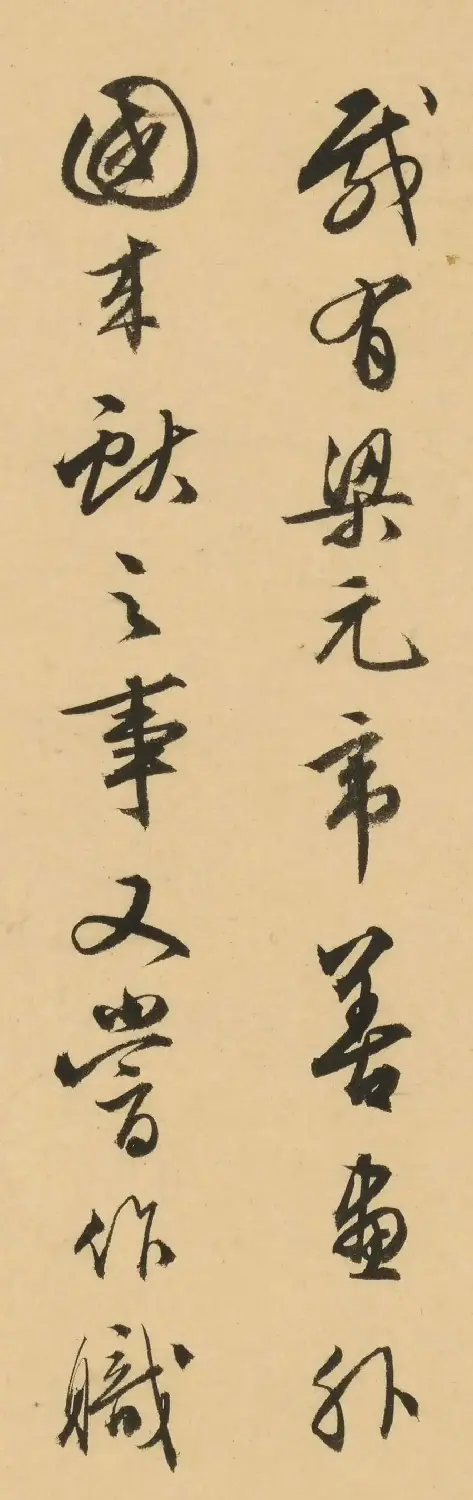 載有梁元帝善畫外
國来獻之事又嘗作職